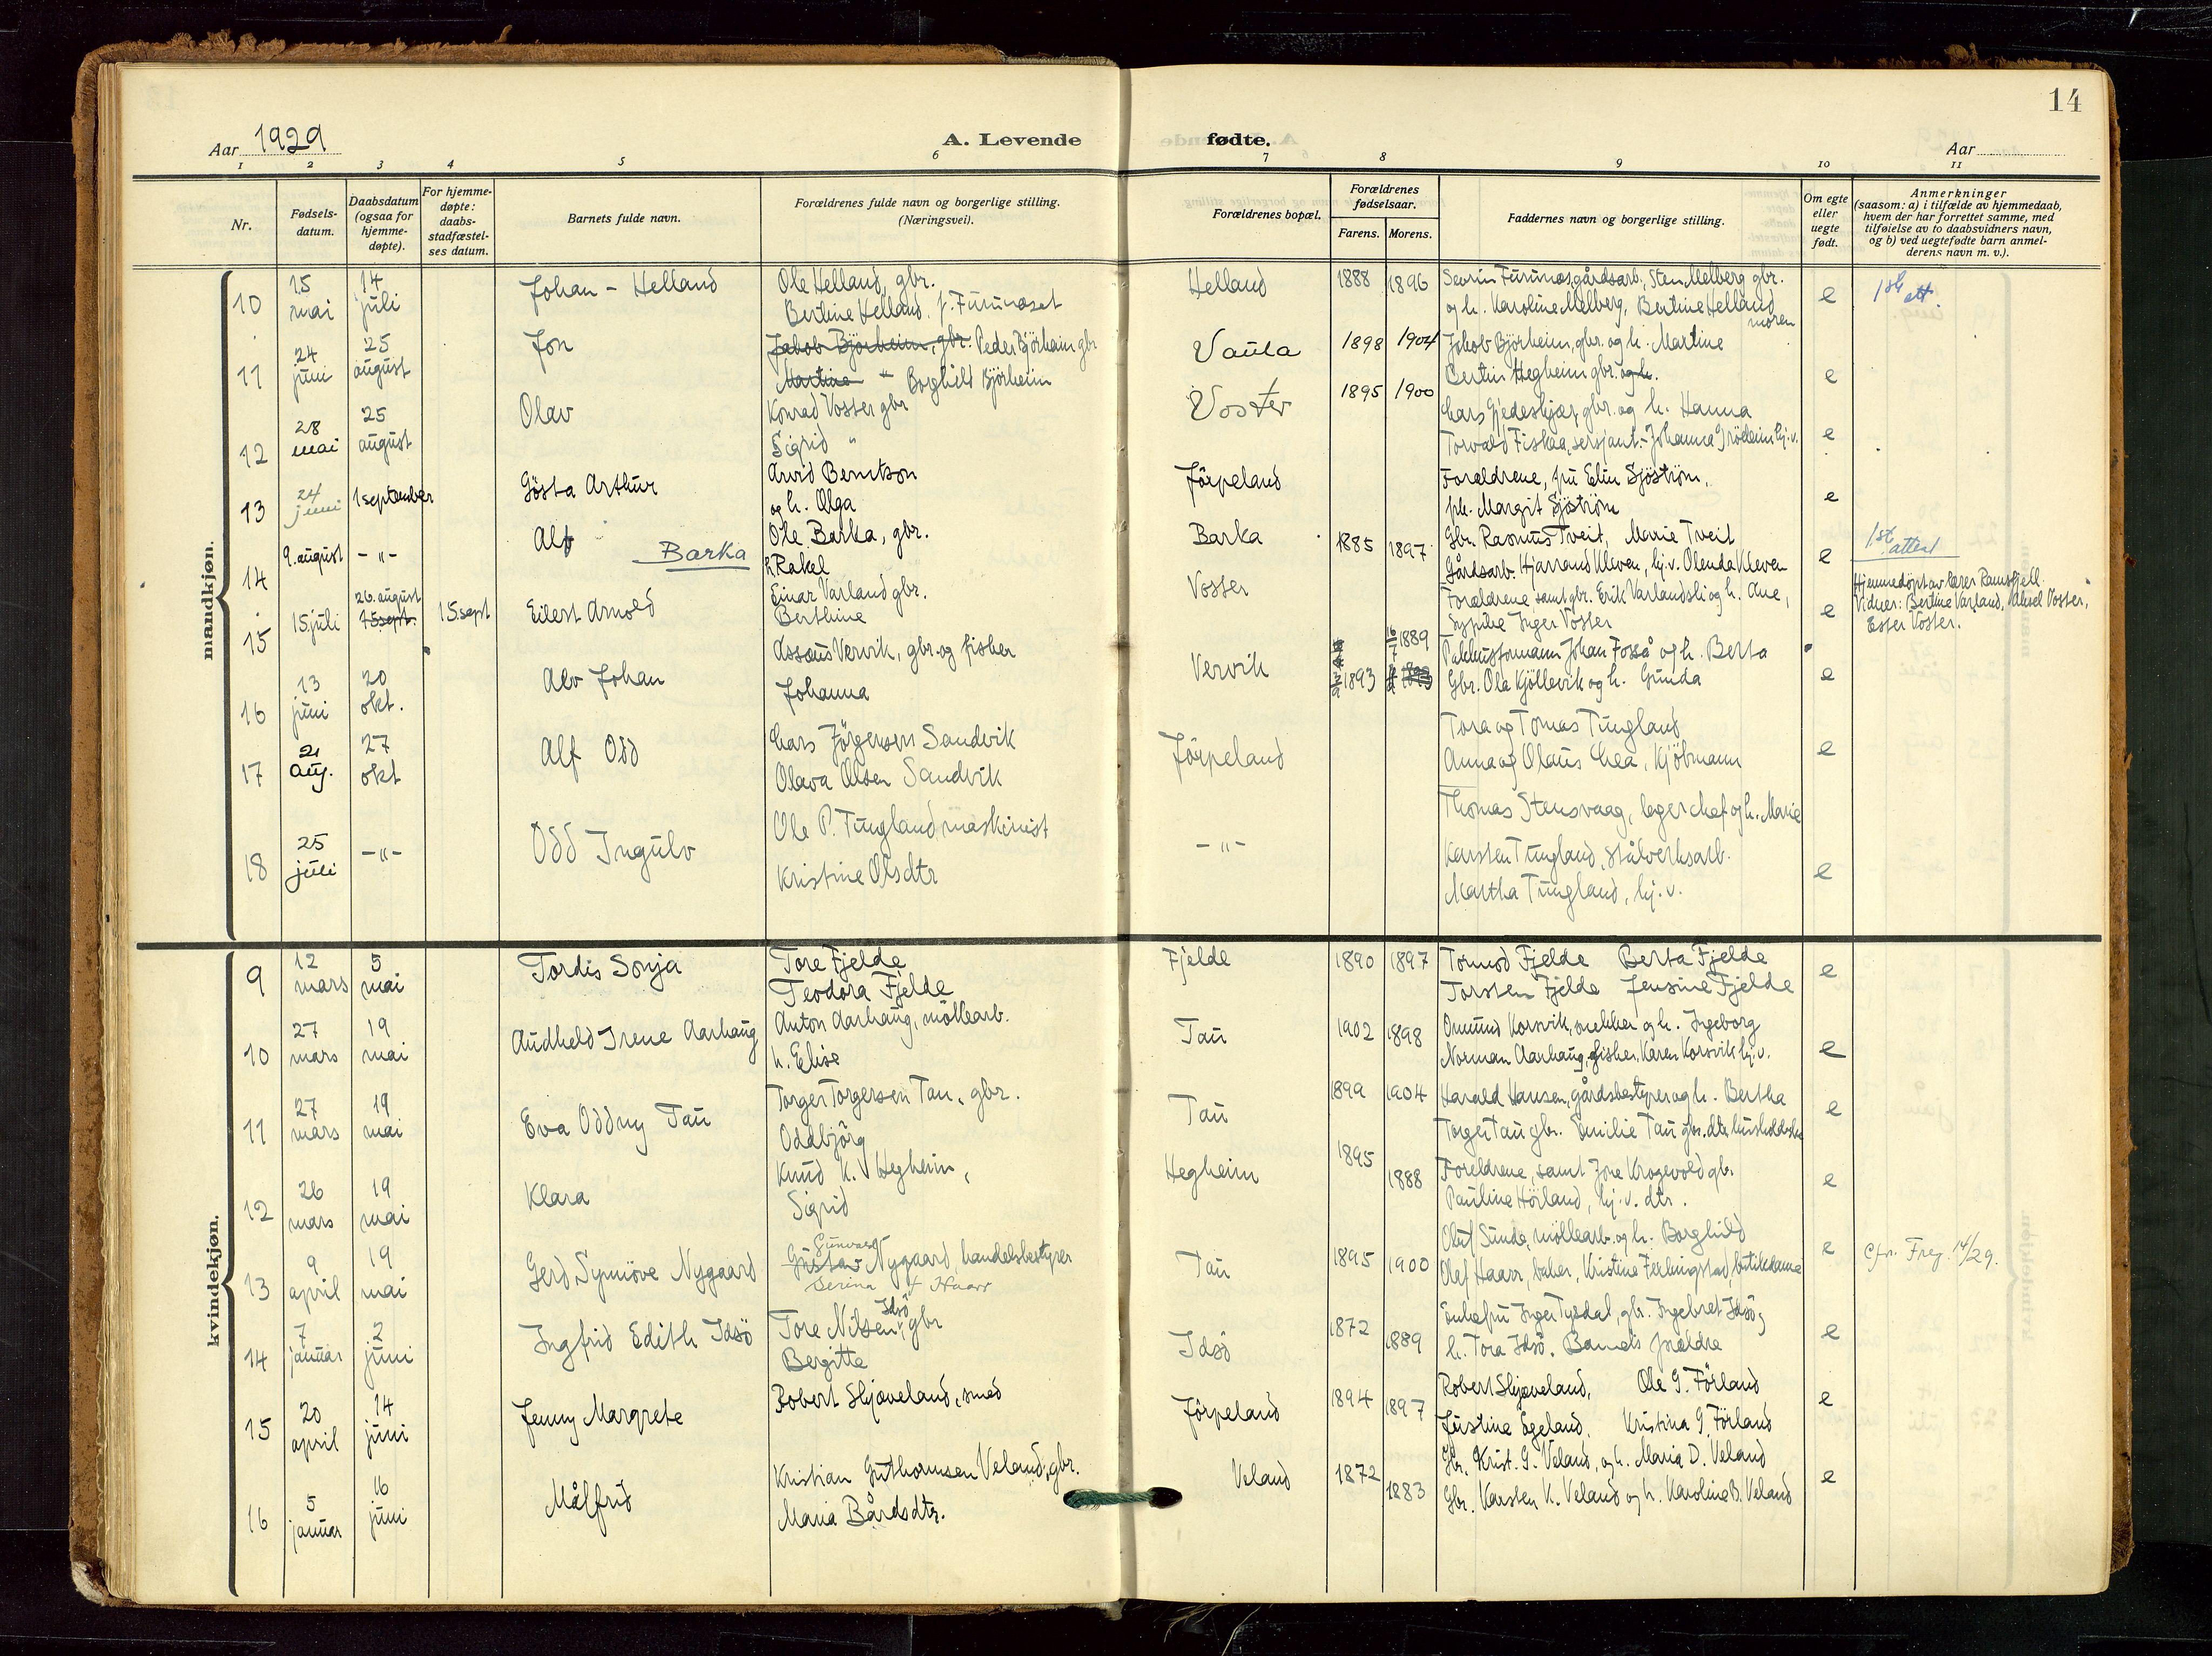 14
Aar 1929
A. Levende fødte.
Aar
1 2 3 4 5 6 7 8 9 10 11
Nr.
Fødsels-
datum.
Daabsdatum
(ogsaa for
hjemme-
døpte).
For hjemme-
døpte:
daabs-
stadfæstel-
ses datum.
Barnets fulde navn.
Forældrenes fulde navn og borgerlige stilling.
(Næringsvei).
Forældrenes bopæl.
Forældrenes
fødselsaar.
Farens. Morens.
Faddernes navn og borgerlige stilling.
Om egte
eller
uegte
født.
Anmerkninger
(saasom: a) i tilfælde av hjemmedaab,
hvem der har forrettet samme, med
tilføielse av to daabsvidners navn,
og b) ved uegtefødte barn anmel-
derens navn m. v.).
mandkjøn.
10 15 mai 14 juli Johan - Helland
Ole Helland, gbr.
Bertine Helland f. Furunæset
Helland 1888 1896
Sevrin Furunæs, gårdsarb., Sten Melberg gbr.
og h. Karoline Melberg, Bertine Helland
moren
e 1 st. att.
11 24 juni 25 august Jon
Jakob Björheim, gbr. Peder Björheim gbr
Martine " Borghild Björheim
Vaula 1898 1904
Jakob Björheim, gbr. og h. Martine
Bertin Hegheim gbr. og h.
e
12 28 mai 25 august Olav
Konrad Voster gbr
Sigrid "
Voster 1895 1900
Lars Gjedeskjær, gbr. og h. Hanna
Torvald Fiskaa, sersjant - Johanna Gröheim hj. v.
e
13 24 juni 1 september Gösta Arthur
Arvid Berntson
og h. Olga
Jörpeland
Forældrene, fru Elin Sjöström,
frk. Margit Sjöström
e
14 9. august -"- Alf Barka
Ole Barka, gbr.
h. Rakel
Barka 1885 1897
Gbr. Rasmus Tveit, Marie Tveit
Gårdsarb. Hjarrand Kleven, hj. v. Olenda Kleven
e 1 st. attest
15 15. juli 26. august 15 sept. 15. sept Eilert Arnold
Einar Varland gbr.
Berthine
Voster
Forældrene samt gbr. Erik Varlandsli og h. Ane,
Sypike Inger Voster
e
Hjemmedöpt av lærer Ramsfjell.
Vidner: Bertine Varland, Aksel Voster,
Ester Voster.
16 13 juni 20 okt. Alv Johan
Assens Vervik, gbr. og fisker
Johanna
Vervik 1893 16/7 1889
Pakhusformann Johan Fosså og h. Berta
Gbr. Ola Kjöllevik og h. Gunda
e
17 21 aug. 27 okt Alf Odd
Lars Jörgensen Sandvik
Olava Olsen Sandvik
Jörpeland
Tora og Tomas Tungland
Anna og Olaus Lea, Kjöbmann
e
18 25 juli -"- Odd Ingulv
Ole P. Tungland, maskinist
Kristine Olsdtr
-"-
Thomas Stensvaag, lagerchef og h. Marie
Karsten Tungland, stålverksarb.
Martha Tungland, hj. v.
e
kvindekjøn.
9 12 mars 5 mai Tordis Sonja
Tore Fjelde
Teodora Fjelde
Fjelde 1890 1897
Tormod Fjelde Berta Fjelde
Torsten Fjelde Jensine Fjelde
e
10 27 mars 19 mai Audheld Irene Aarhaug
Anton Aarhaug, möllearb.
h. Elise
Tau 1902 1898
Omund Korsvik, snekker og h. Ingeborg
Norman Aarhaug, fisker, Karen Korsvik hj. v.
e
11 27 mars 19 mai Eva Oddny Tau
Torger Torgersen Tau, gbr.
Oddbjörg
Tau 1899 1904
Harald Hansen, gårdsbestyrer og h. Bertha
Torger Tau gbr. Emilie Tau gbr. dtr.
e
12 26 mars 19 mai Klara
Knud K. Hegheim,
Sigrid
Hegheim 1895 1888
Foreldrene, samt Jone Krogevold gbr
Pauline Hörland, hj. v. dtr.
e
13 9 april 19 mai Gerd Synnöve Nygaard
Gunvald
Gustav Nygaard, handelsbestyrer
Serina f Haarr
Tau 1895 1900
Oluf Sunde, möllearb. og h. Borghild
Olaf Haarr, baker, Kristine Ferkingstad, butikdame
e cfr. Frey. 14/29.
14 7 januar 2 juni Ingfrid Edith Idsö
Idsö
Tore Nilsen, gbr
Bergitte
Idsö 1872 1889
Enkefru Inger Tysdal, gbr. Ingebret Idsö,
h. Tora Idsö. Barnets foreldre
e
15 20 april 14 juni Jenny Margrete
Robert Skjæveland, smed
Jörpeland 1894 1897
Robert Skjæveland, Ole G. Förland
Justine Egeland. Kristina G. Förland
e
16 5 januar 16 juni Målfrid
Kristian Guthormsen Veland, gbr.
Maria Bårdsdtr.
Veland 1872 1883
Gbr. Krist. G. Veland, og h. Maria D. Veland
Gbr. Karsten K. Veland og h. Karoline B. Veland
e